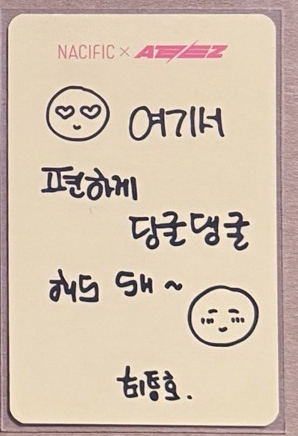 NACIFIC × ATEEZ
여기서
편하게
딩굴댕굴
해도 돼 ~
최종호.